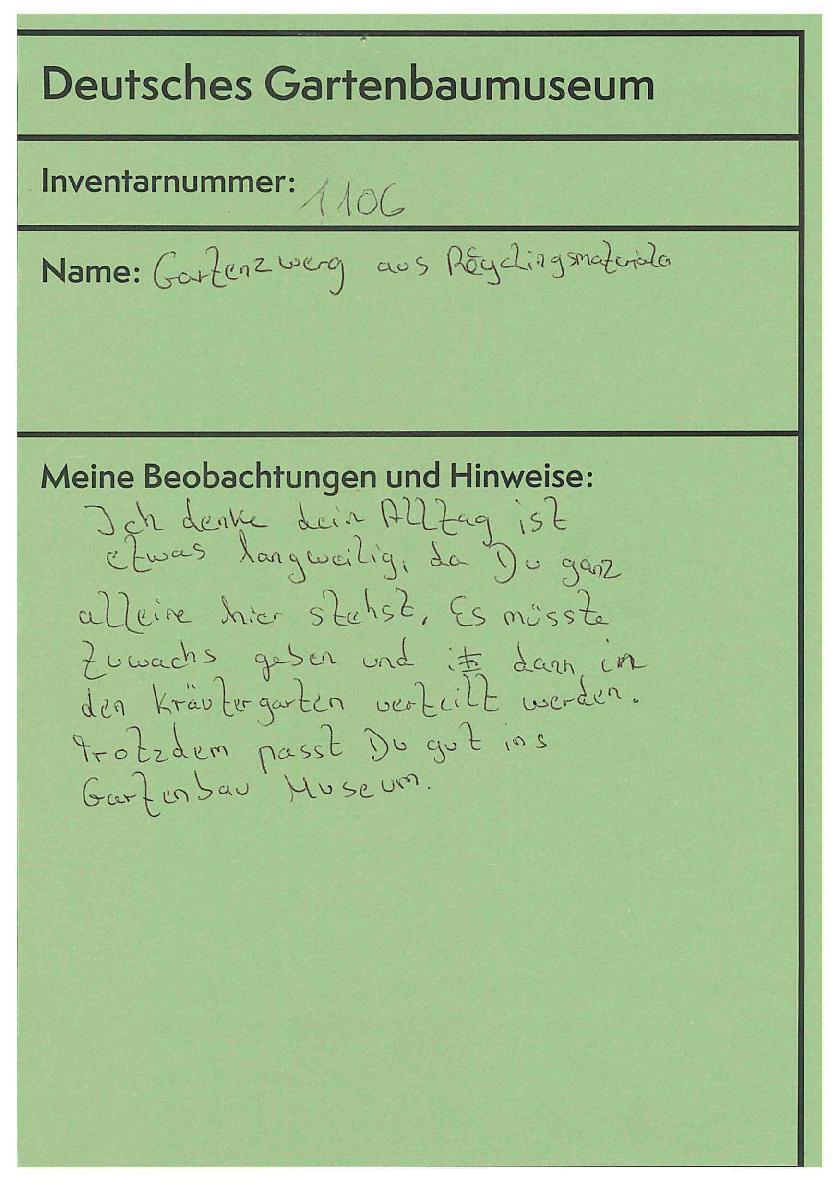 Deutsches Gartenbaumuseum
Inventarnummer: 1106
Name: Gartenzwerg aus
Meine Beobachtungen und Hinweise:
Ich denke dein Alltag ist
etwas langweilig, da Du ganz
alleine hier stehst. Es müsste
Zuwachs geben und dann in
den Kräutergarten verteilt werden.
trotzdem passt Du gut ins
Gartenbau Museum.